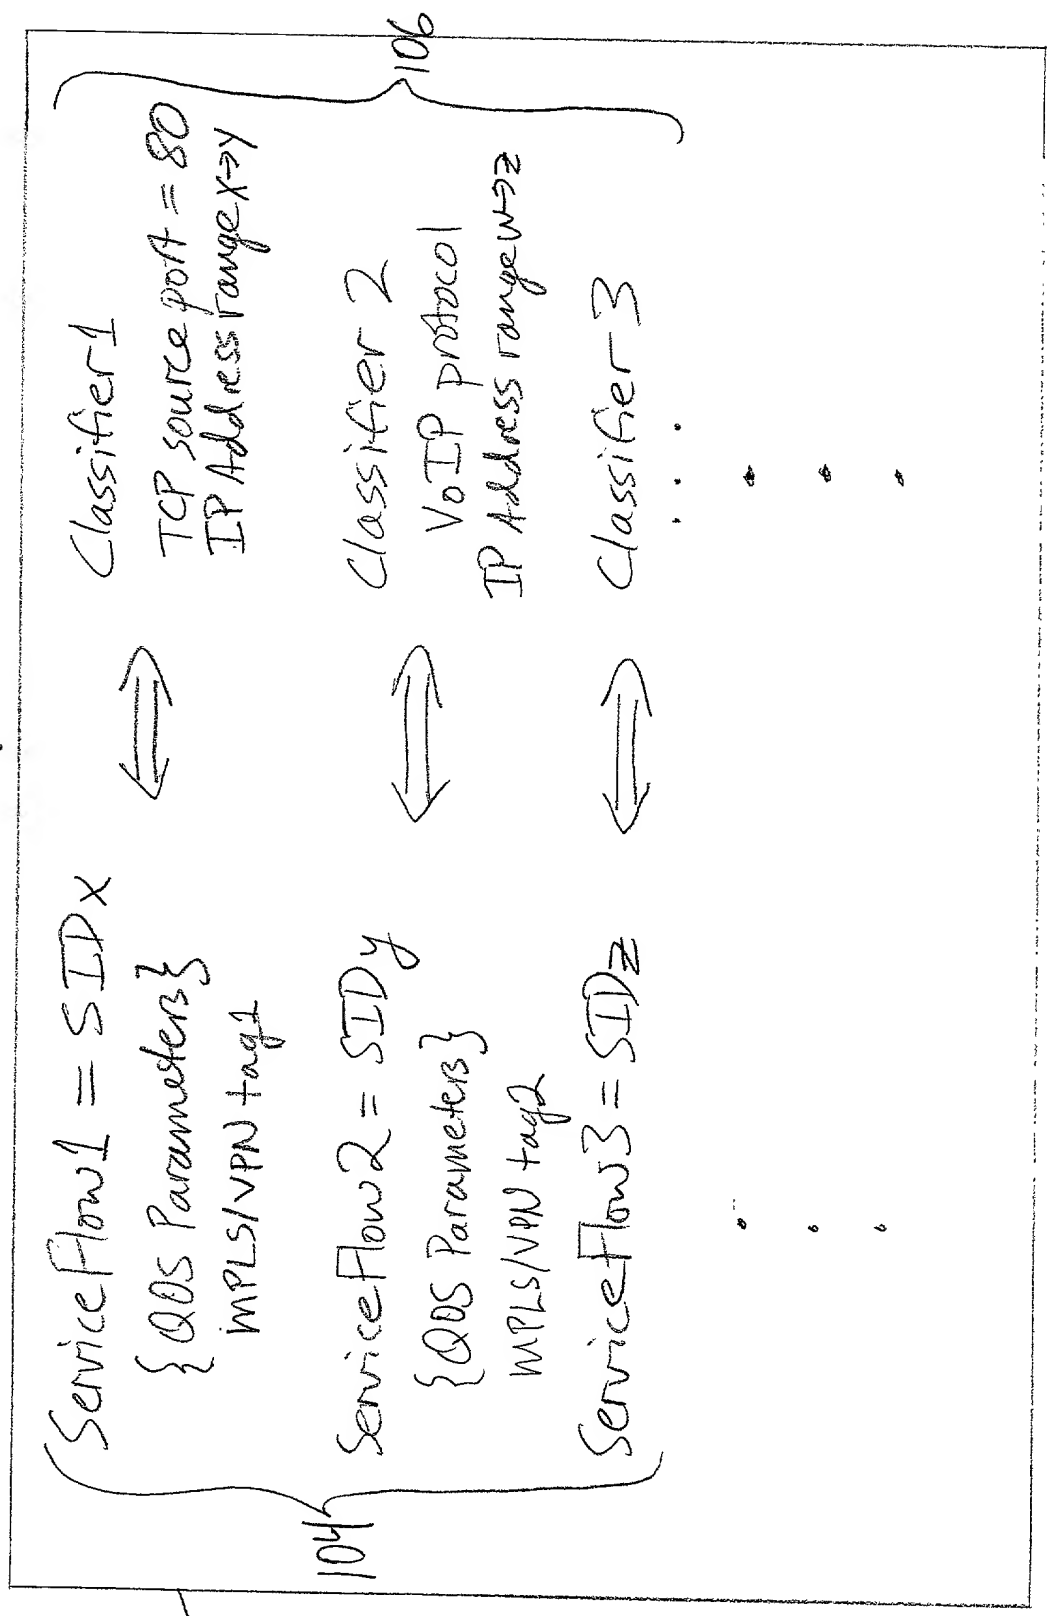 104
Service Flow 1 = SIDx
{QOS Parameters}
MPLS/VPN tag1
Service Flow 2 = SIDy
{QOS Parameters}
MPLS/VPN tag2
Service Flow 3 = SIDz
106
Classifier 1
TCP source port = 80
IP Address range x→y
Classifier 2
VoIP protocol
IP Address range w→z
Classifier 3
. . .